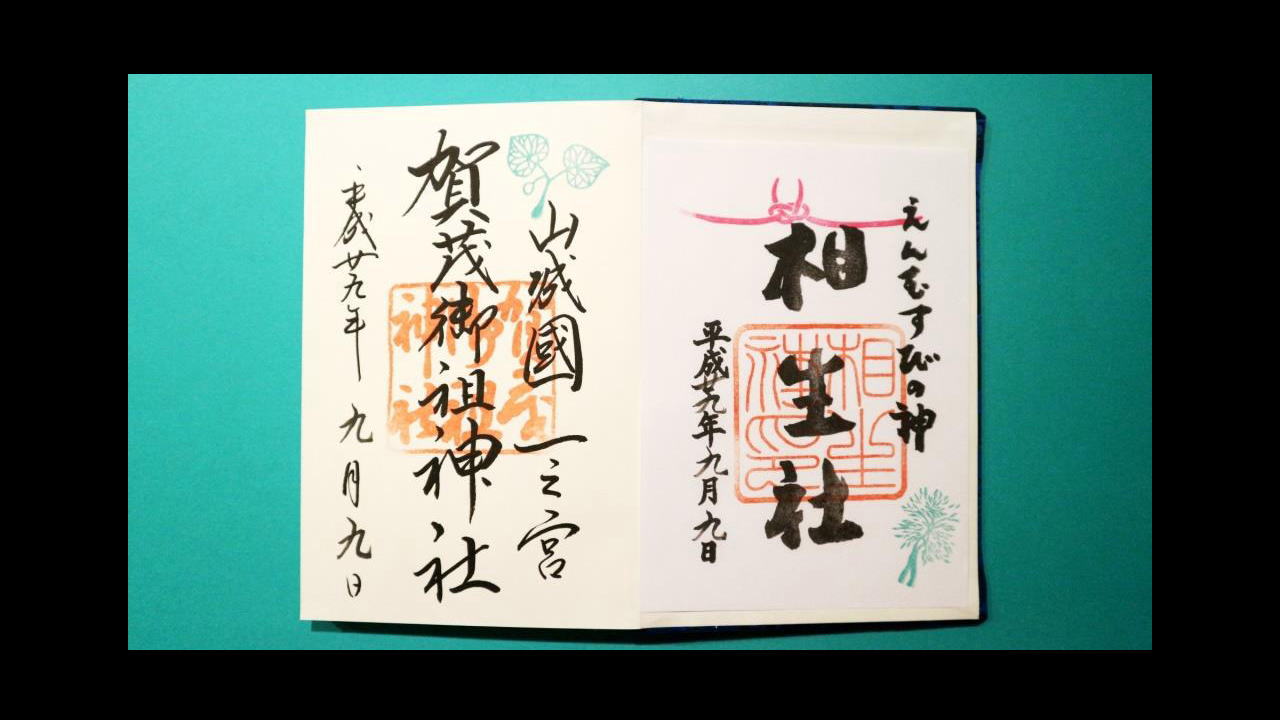 えんむすびの神
相生社
相生社神印
平成廿九年九月九日
山城國一之宮
賀茂御祖神社
賀茂御祖神社
平成廿九年九月九日